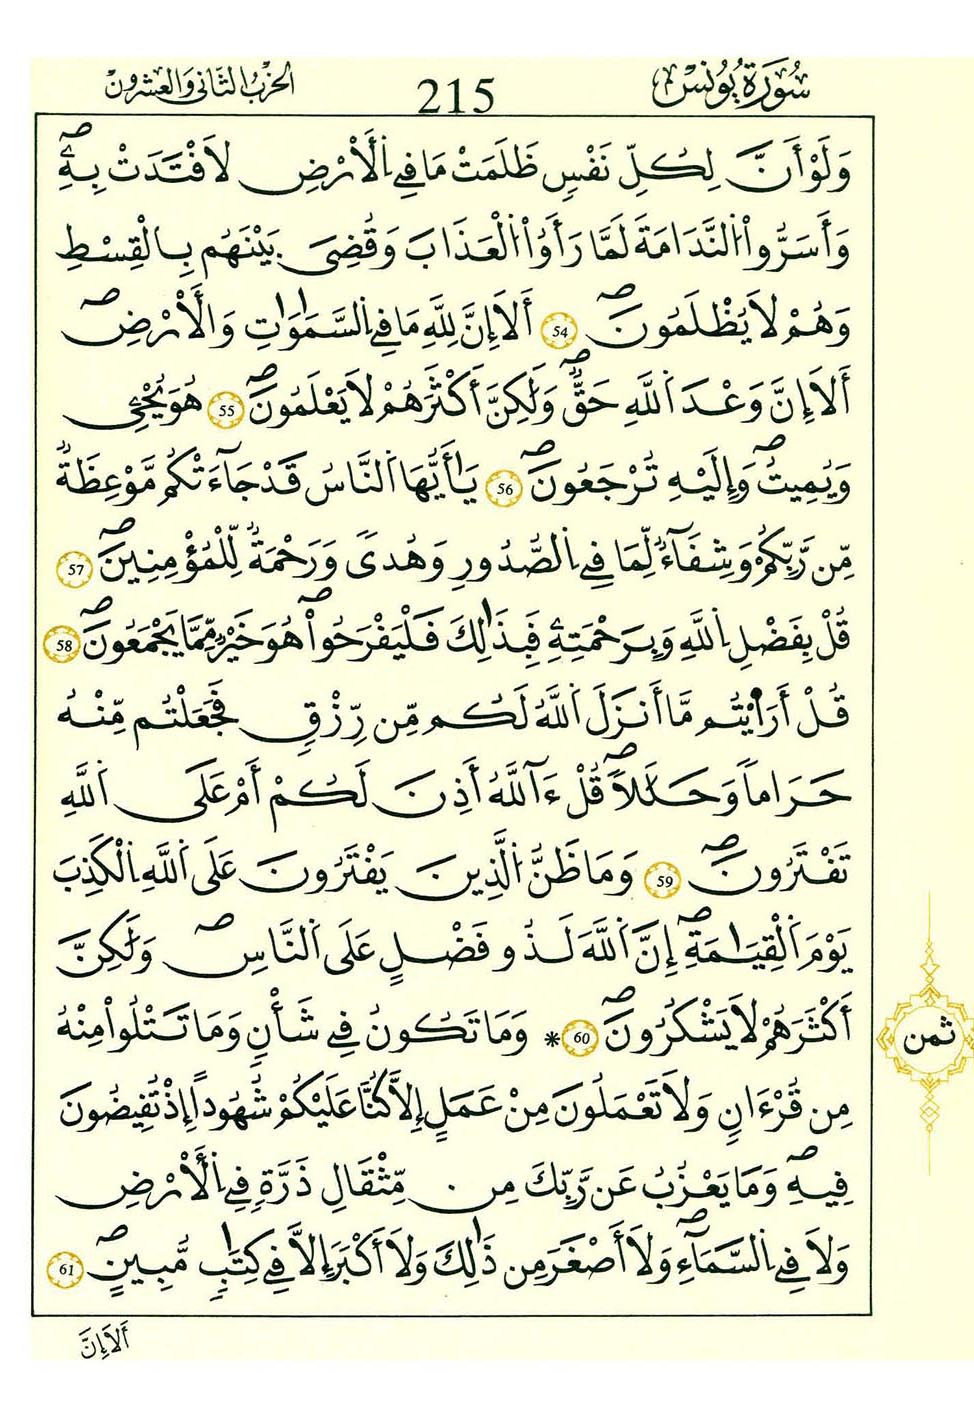 سُورَةُ يُونُسَ
215
الحزب الثاني والعشرون
وَلَوْ أَنَّ لِكُلِّ نَفْسٖ ظَلَمَتْ مَا فِے اِ۬لَارْضِ لَافْتَدَتْ بِهِۦۖ
وَأَسَرُّواْ اُ۬لنَّدَامَةَ لَمَّا رَأَوُاْ اُ۬لْعَذَابَ وَقُضِيَ بَيْنَهُم بِالْقِسْطِ
وَهُمْ لَا يُظْلَمُونَۖ 54 أَلَا إِنَّ لِلهِ مَا فِے اِ۬لسَّمَٰوَٰتِ وَالَارْضِۖ
أَلَا إِنَّ وَعْدَ اَ۬للَّهِ حَقّٞۖ وَلَٰكِنَّ أَكْثَرَهُمْ لَا يَعْلَمُونَۖ 55 هُوَ يُحْيِۦ
وَيُمِيتُۖ وَإِلَيْهِ تُرْجَعُونَۖ 56 يَٰأَيُّهَا اَ۬لنَّاسُ قَدْ جَآءَتْكُم مَّوْعِظَةٞ
مِّن رَّبِّكُمْ وَشِفَآءٞ لِّمَا فِے اِ۬لصُّدُورِ وَهُدىٗ وَرَحْمَةٞ لِّلْمُؤْمِنِينَۖ 57
قُلْ بِفَضْلِ اِ۬للَّهِ وَبِرَحْمَتِهِۦ فَبِذَٰلِكَ فَلْيَفْرَحُواْۖ هُوَ خَيْرٞ مِّمَّا يَجْمَعُونَۖ 58
قُلْ أَرَٰٓيْتُم مَّا أَنزَلَ اَ۬للَّهُ لَكُم مِّن رِّزْقٖ فَجَعَلْتُم مِّنْهُ
حَرَاماٗ وَحَلَٰلاٗۖ قُلْ ءَآللَّهُ أَذِنَ لَكُمْ أَمْ عَلَى اَ۬للَّهِ
تَفْتَرُونَۖ 59 وَمَا ظَنُّ اُ۬لَّذِينَ يَفْتَرُونَ عَلَى اَ۬للَّهِ اِ۬لْكَذِبَ
يَوْمَ اَ۬لْقِيَٰمَةِۖ إِنَّ اَ۬للَّهَ لَذُو فَضْلٍ عَلَى اَ۬لنَّاسِۖ وَلَٰكِنَّ
أَكْثَرَهُمْ لَا يَشْكُرُونَۖ 60 * وَمَا تَكُونُ فِے شَأْنٖ وَمَا تَتْلُواْ مِنْهُ
ثمن
مِن قُرْءَانٖ وَلَا تَعْمَلُونَ مِنْ عَمَلٍ إِلَّا كُنَّا عَلَيْكُمْ شُهُوداً إِذْ تُفِيضُونَ
فِيهِۖ وَمَا يَعْزُبُ عَن رَّبِّكَ مِن مِّثْقَالِ ذَرَّةٖ فِے اِ۬لَارْضِ
وَلَا فِے اِ۬لسَّمَآءِۖ وَلَا أَصْغَرَ مِن ذَٰلِكَ وَلَا أَكْبَرَ إِلَّا فِے كِتَٰبٖ مُّبِينٍۖ 61
أَلَا إِنَّ